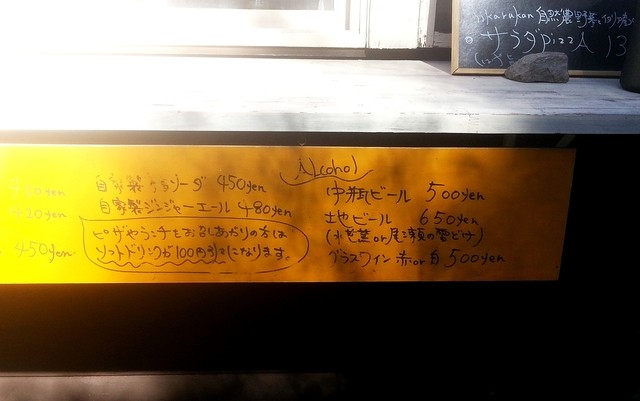 自然農野菜
サラダpizzA 13
450yen
自家製ゆずソーダ 450yen
自家製ジンジャーエール 480yen
ピザやランチをお召しあがりの方は
ソフトドリンクが100円引きになります。
ALcohol
中瓶ビール 500yen
地ビール 650yen
or尾瀬の雪どけ)
グラスワイン 赤or白 500yen